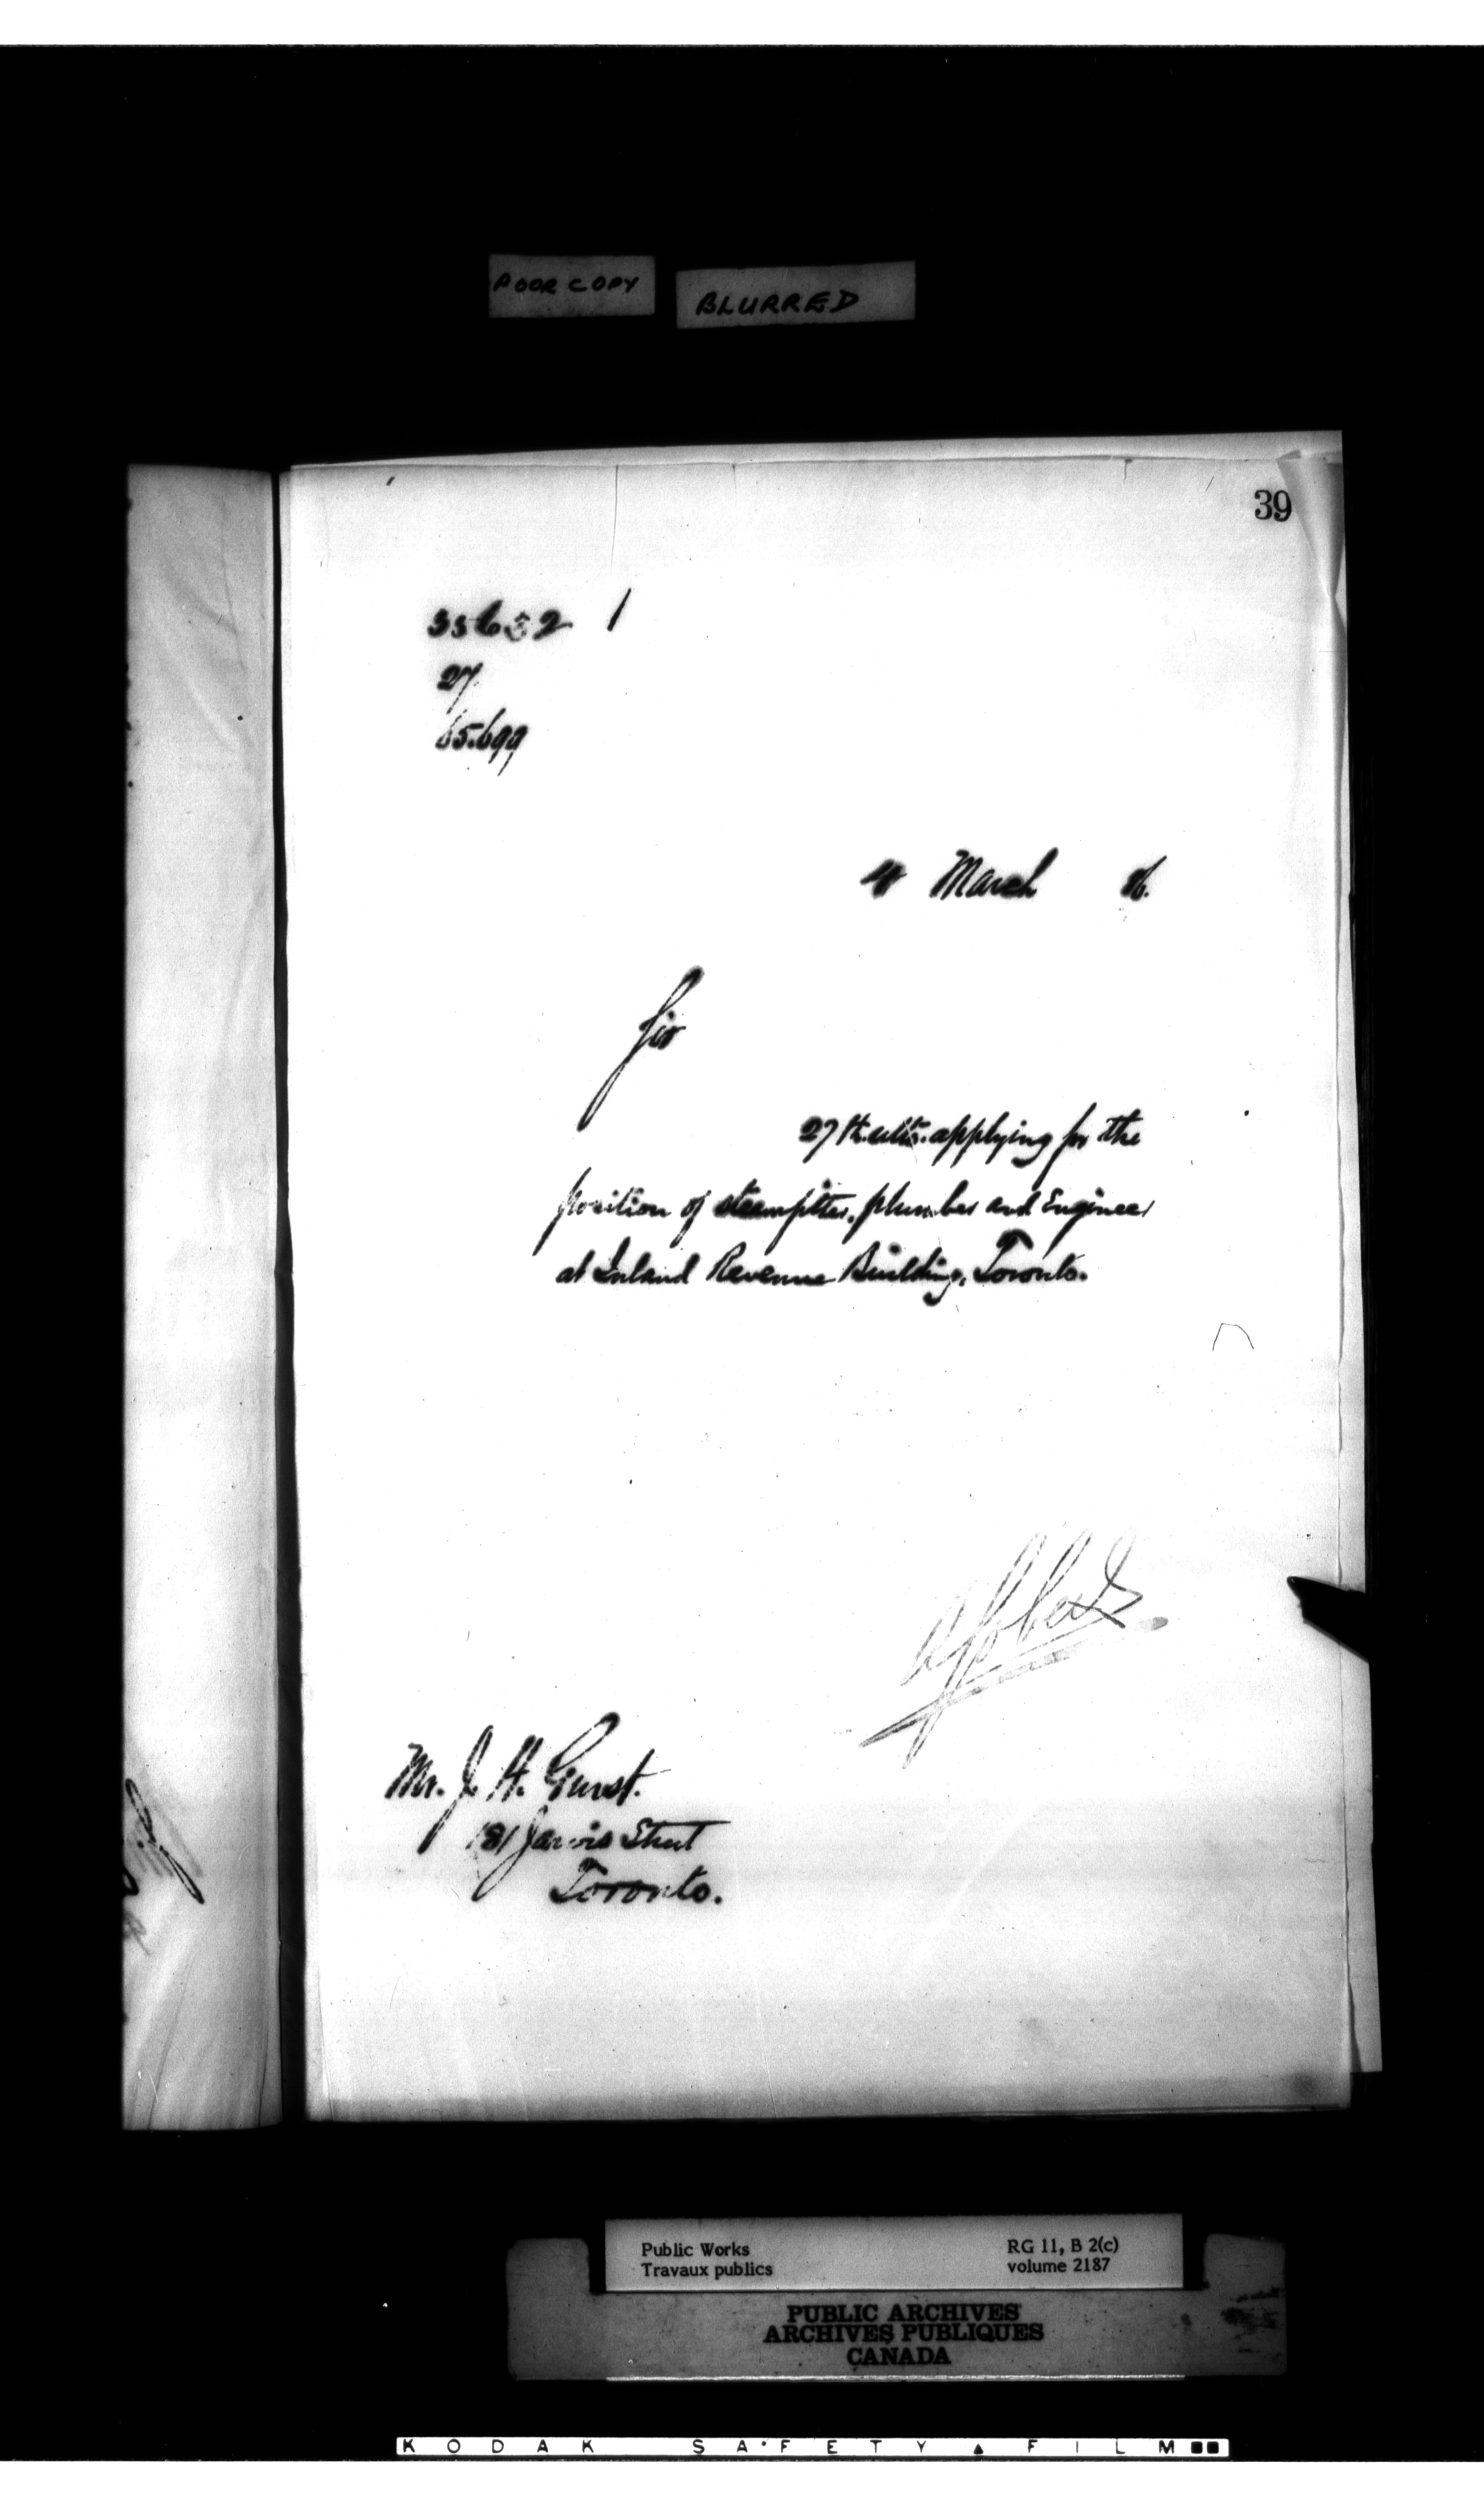 POOR COPY
BLURRED
39
35632 1
27
65.699
4 March 86.
Sir
27th. ulto. applying for the
position of steamfitter, plumber and Engineer
at Inland Revenue Building, Toronto.
Mr. J. H.
181 Jarvis Street
Toronto.
Public Works
Travaux publics
RG 11, B 2(c)
volume 2187
PUBLIC ARCHIVES
ARCHIVES PUBLIQUES
CANADA
KODAK SAFETY FILM